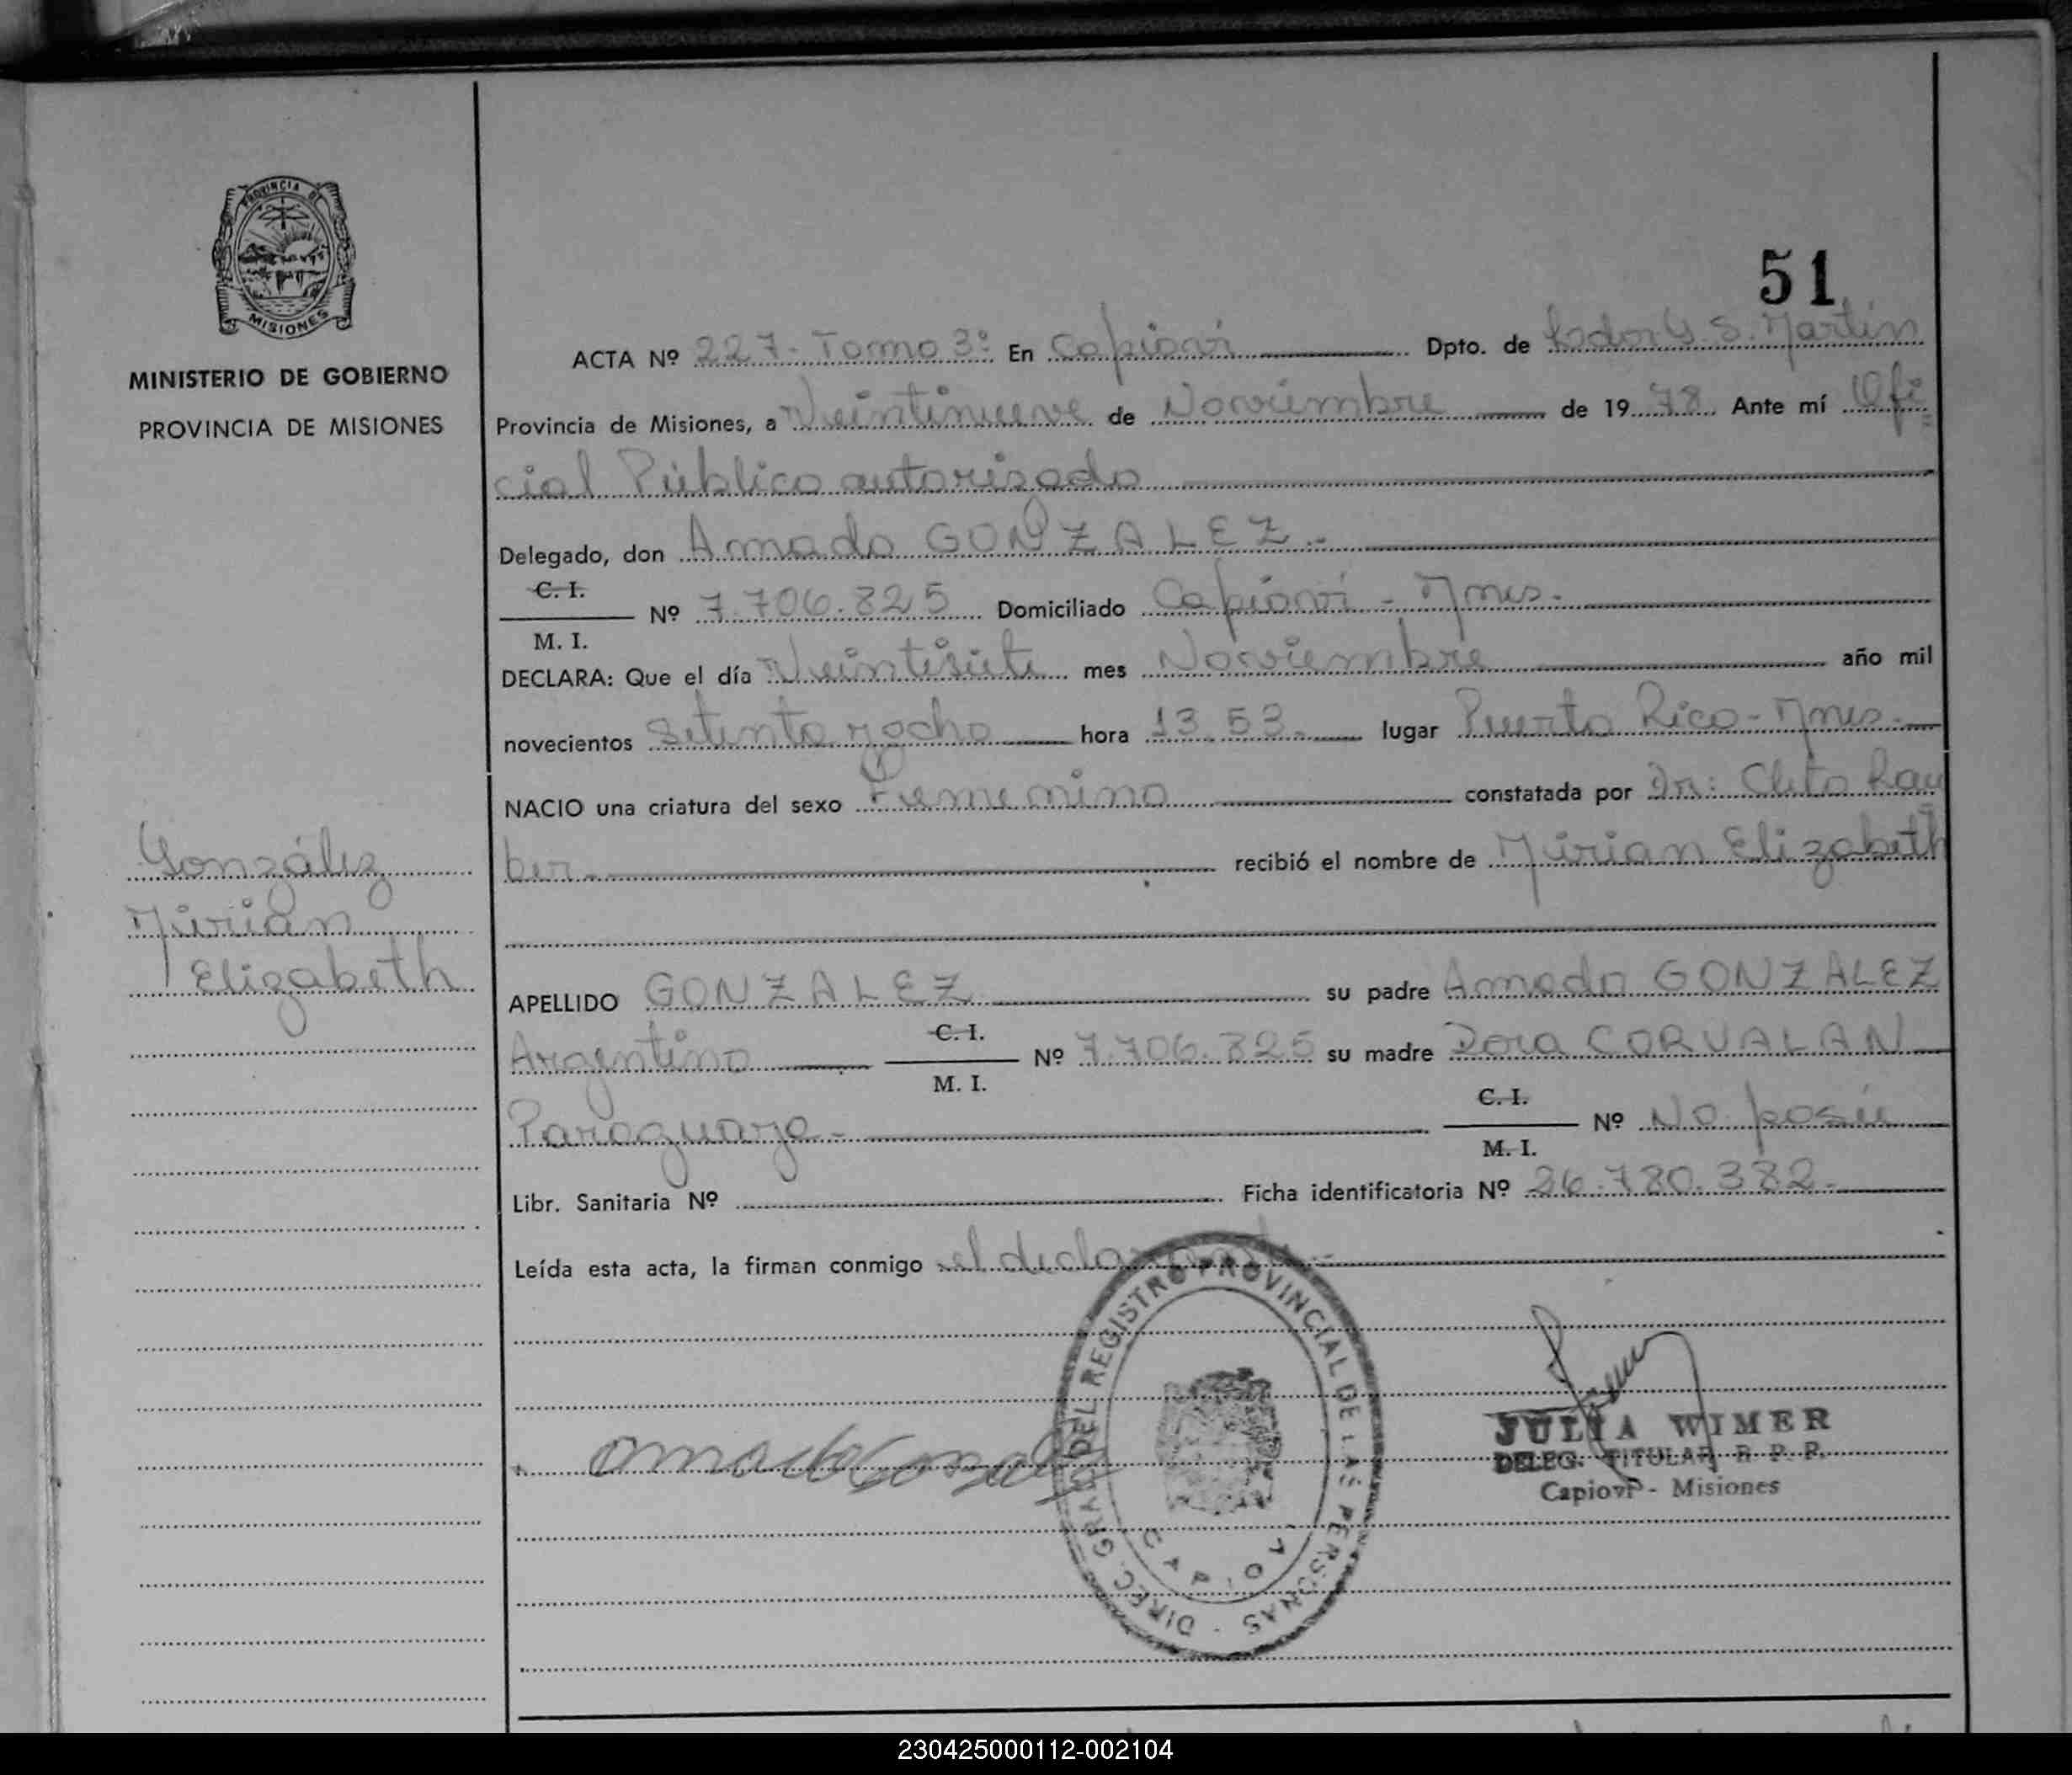 PROVINCIA DE
MISIONES
MINISTERIO DE GOBIERNO
PROVINCIA DE MISIONES
51
ACTA Nº 227- Tomo 3º En Capioví Dpto. de Lbdor G. S. Martín
Provincia de Misiones, a Veintinueve de Noviembre de 1978. Ante mí Ofi=
cial Público autorisado
Delegado, don Amado GONZALEZ.-
C. I.
M. I.
Nº 7.706.825 Domiciliado Capioví - Mnes.
DECLARA: Que el día Veintisiete mes Noviembre año mil
novecientos Setenta y ocho hora 13.53. lugar Puerto Rico - Mnes.
NACIO una criatura del sexo Femenino constatada por Dr: Cleto Rau=
ber. recibió el nombre de Mirian Elizabeth
González
Mirian
Elizabeth
APELLIDO GONZALEZ su padre Amado GONZALEZ
Argentino C. I. M. I. Nº 7.706.825 su madre Dora CORVALAN
Paraguaya.- C. I. M. I. Nº No posee
Libr. Sanitaria Nº Ficha identificatoria Nº 26.780.382.
Leída esta acta, la firman conmigo el declarante.-
DIREC. GRAL. DEL REGISTRO PROVINCIAL DE LAS PERSONAS -
Amado Gonzalez
JULIA WIMER
DELEG. TITULAR R. P. P.
Capioví - Misiones
230425000112-002104